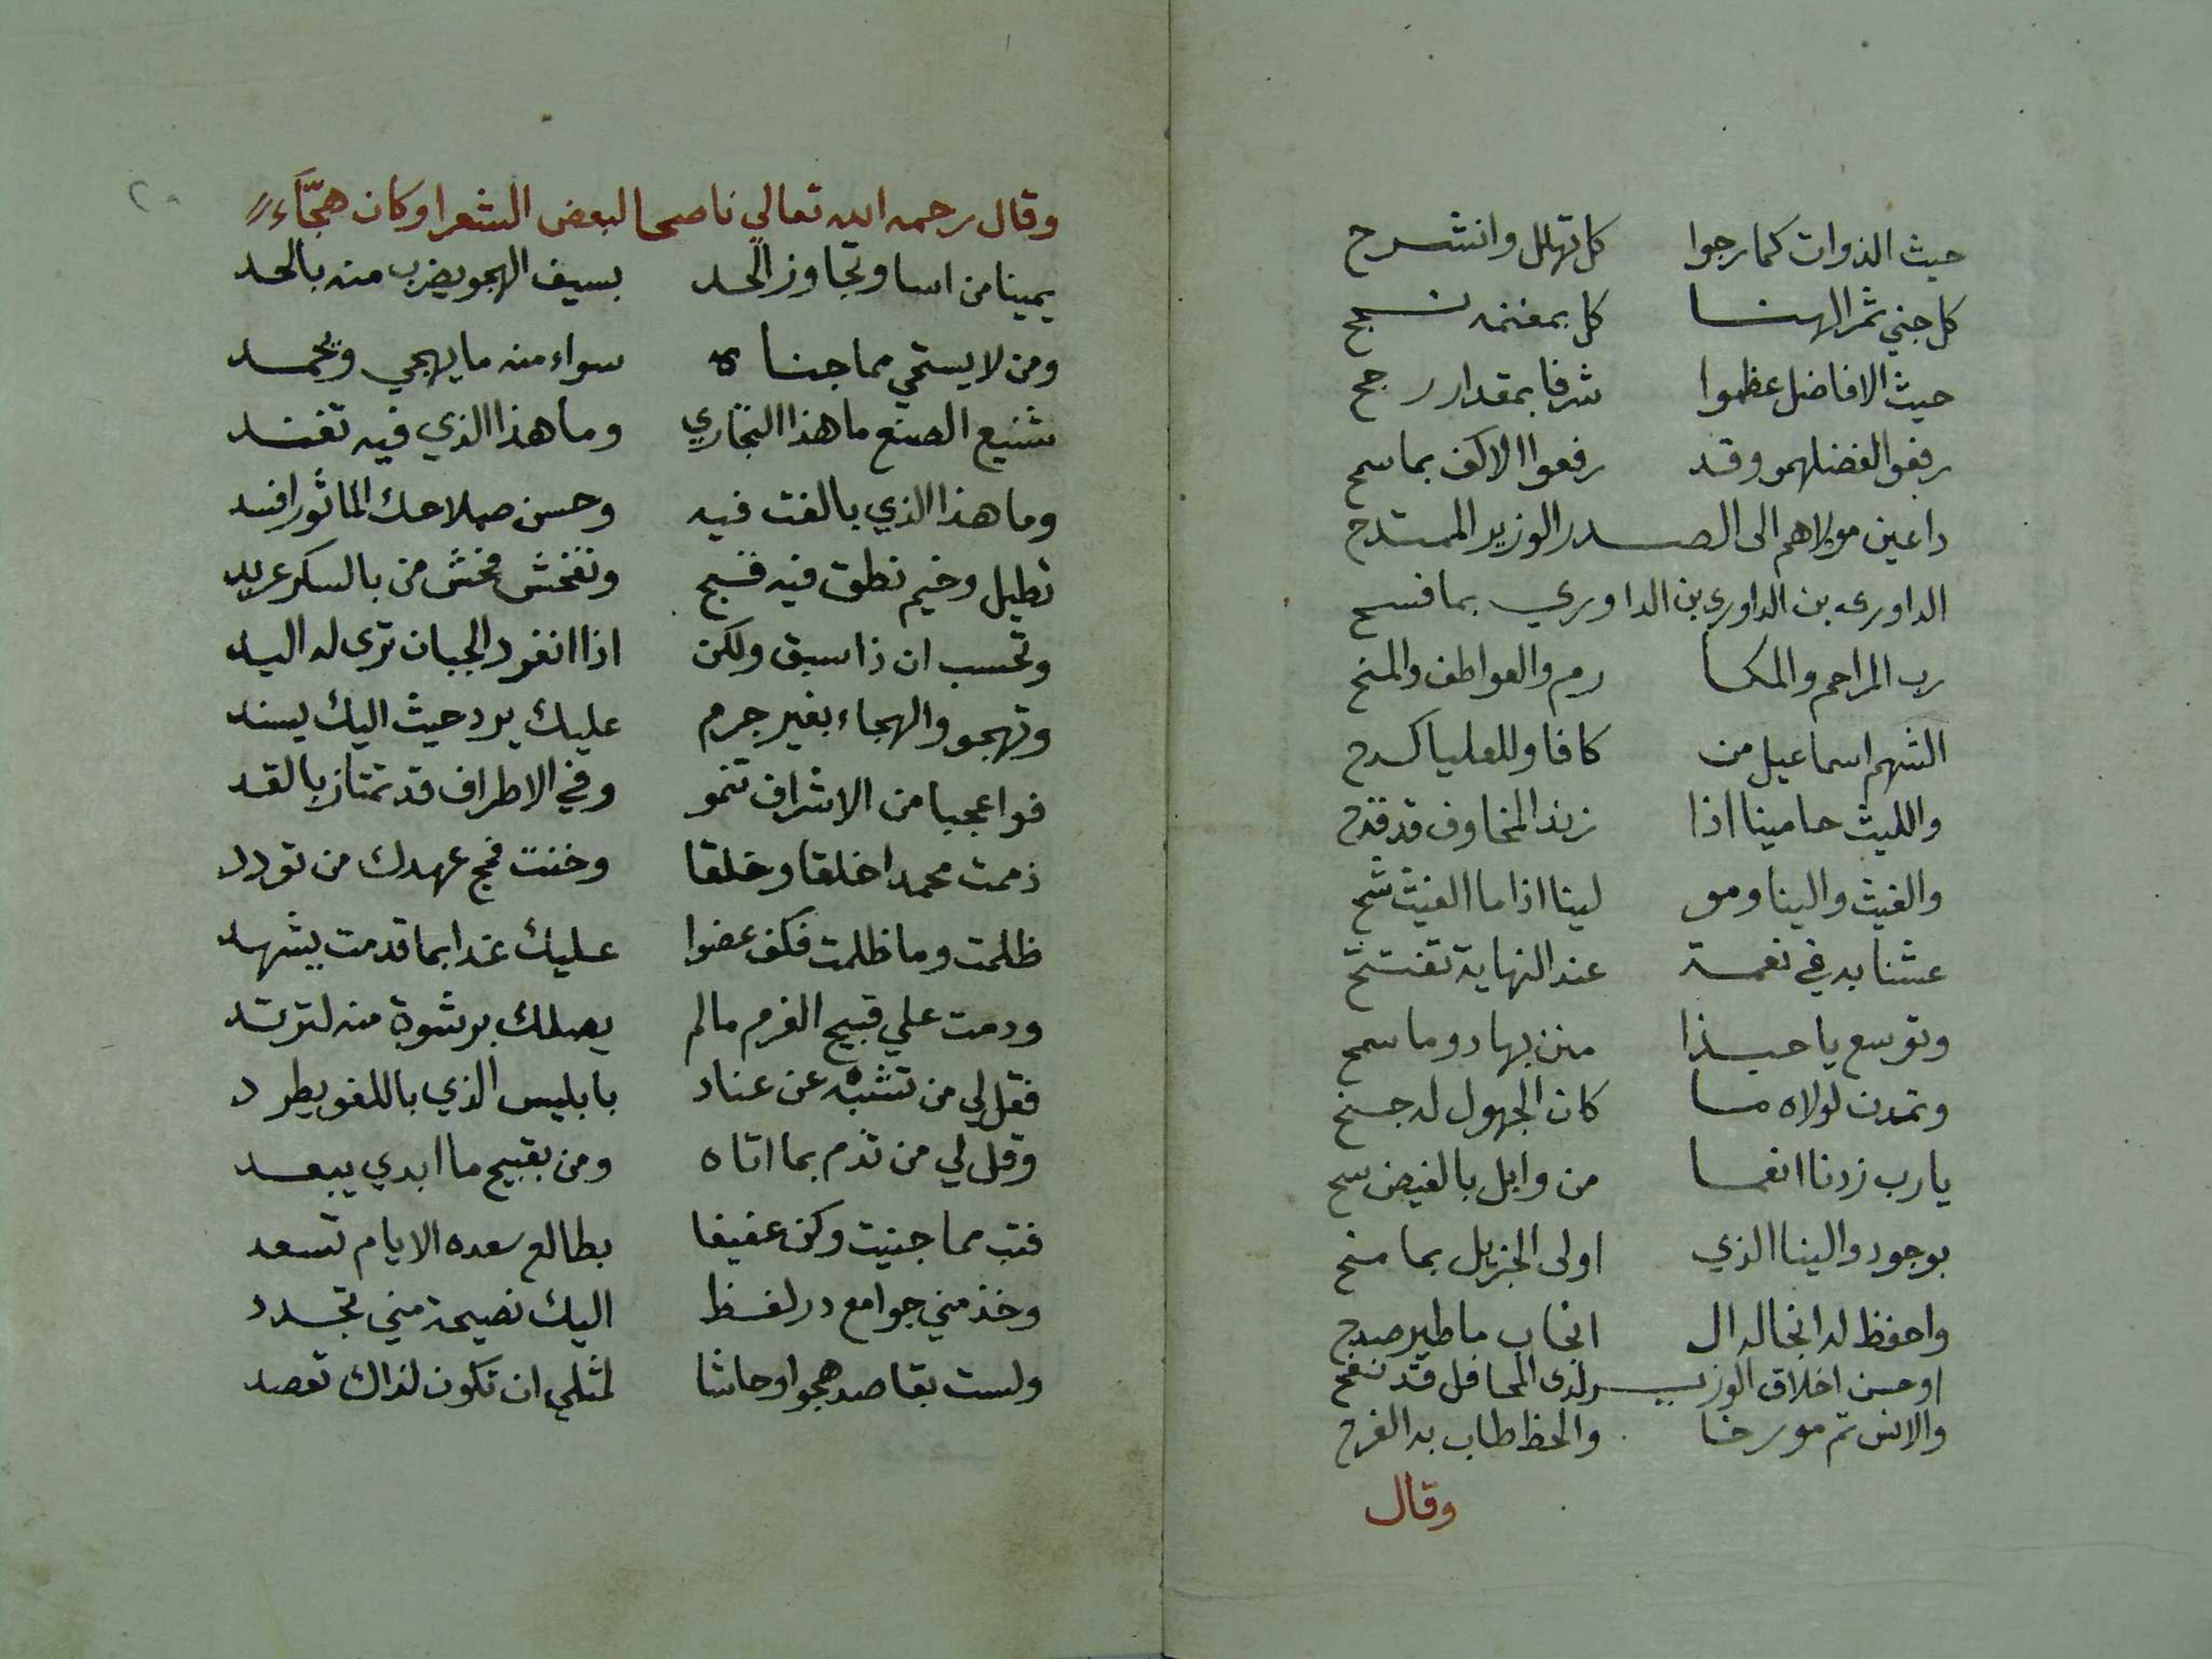 حيث الذوات كما رجوا كل تهلل وانشرح
كل جني ثمر الهنا كل بمغنمه نجح
حيث الافاضل عظموا شرفا بمقدار رجح
رفعوا لفضلهمو وقد رفعوا الاكف بما سمح
داعين مولاهم الى الصدر الوزير الممتدح
الداوري بن الداوري بن الداوري بما فسح
رب المراحم والمكا رم والعواطف والمنح
الشهم اسماعيل من كافا وللعليا كدح
والليث حامينا اذا زند المخاوف قد قدح
والغيث والينا ومو لينا اذا ما الغيث شح
عشنا به في نعمة عند النهاية تفتتح
وتوسع يا حبذا منن بها دوما سمح
وتمدن لولاه ما كان الجهول له جنح
يا رب زدنا انعما من وابل بالفيض سح
بوجود والينا الذي اولى الجزيل بما منح
واحفظ له انجاله ال انجاب ما طير صدح
او حسن اخلاق الوزير لدى المحافل قد نفح
والانس تم مورخا والحظ طاب به الفرح
وقال
٢٠
وقال رحمه الله تعالي ناصحا لبعض الشعرا وكان هجّآء
يمينا من اسا وتجاوز الحد بسيف الهجو يضرب منه بالحد
ومن لا يستحي مما جناه سواء منه ما يهجي ويحمد
شنيع الصنع ما هذا التجاري وما هذا الذي فيه تفند
وما هذا الذي بالغت فيه وحسن صلاحك الماثور افسد
تطيل وخيم نطق فيه قبح وتفحش فحش من بالسكر عربد
وتحسب ان ذا سبق ولكن اذا انفرد الجبان ترى له اليد
وتهجو والهجاء بغير جرم عليك يرد حيث اليك يسند
فواعجبا من الاشراف تنمو وفي الاطراف قد تمتاز بالقد
ذممت محمدا خلقا وخلقا وخنت فج عهدك من تودد
ظلمت وما ظلمت فكف عضوا عليك غدا بما قدمت يشهد
ودمت علي قبيح الغرم مالم يصلك برشوة منه لترتد
فقل لي من تشبه عن عناد بابليس الذي باللغو يطرد
وقل لي من تذم بما اتاه ومن بقبيح ما ابدي يبعد
فتب مما جنيت وكن عفيفا بطالع سعده الايام تسعد
وخذ مني جوامع در لفظ اليك نصيحة مني تجدد
ولست بقاصد هجوا وحاشا لمثلي ان تكون لذاك تعصد